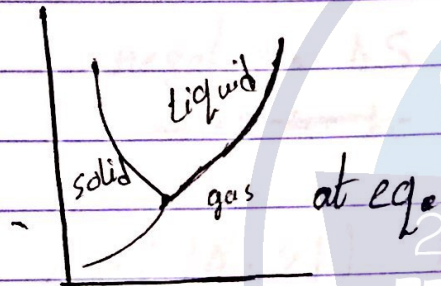 Liquid
solid
gas at eq.
2